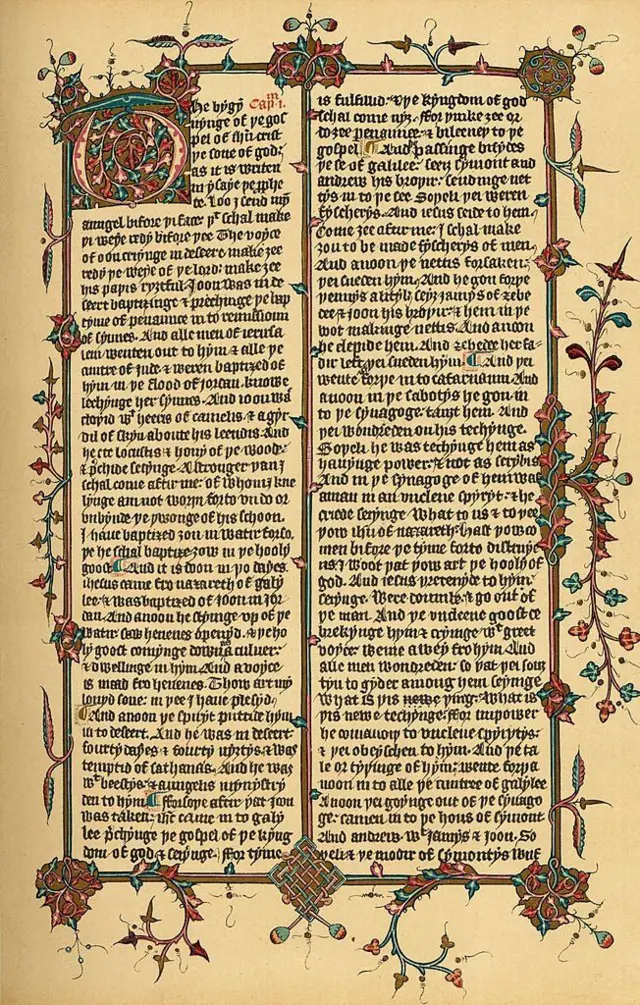 he bygy Cap. i.
nynge of ye gos
pel of ihu crist
ye sone of god:
as it is writen
in ysaye pe pphe
te. Loo I send myn
aungel bifore yi face: yt schal make
yi weye redy bifore yee The voyce
of oon cryinge in desert: make zee
redy ye weye of ye lord: make zee
his papis ryztful. Joon was in de
seert baptisinge & prechinge ye bap
tyme of penaunce in to remissioun
of synnes. And alle men of ierusa
lem wenten out to hym & alle ye
cuntre of Jude & weren baptized of
hym in ye flood of Jordan. knowe
lechynge her synnes. And Joon was
clopid wt heeris of camelis & a gyr
dil of skyn aboute his leendis. And
he ete locustis & hony of ye wode:
& pchide seyinge. A stronger yan I
schal come aftir me: of whom I kne
lynge am not worpi forto vn do or
vnbynde ye ywonge of his schoon.
I haue baptized zou in watir forso.
ye he schal baptize zow in ye hooly
goost And it is doon in yo dayes.
ihesus came fro nazareth of galy
lee & was baptized of Joon in Jor
dan. And anoon he stynge up of ye
watir saw heuenes openyd. & ye ho
ly goost comynge down a culuer:
& dwellinge in hym. And a voyce
is maad fro heuenes. Thow art my
louyd sone: in yee I haue plesyd.
And anoon ye spiryt puttide hym
in to desert. And he was in desert:
fourty dayes & fourty nyztis & was
temptid of sathanas. And he was
wt beestys & aungelis mynystry
den to hym. Fforsoye after yat Joon
was taken: ihc came in to galy
lee pchynge ye gospel of ye kyng
dom of god & seyinge. ffor tyme
is fulfillid. & ye kyngdom of god
schal come nyz. ffor ymke zee or
do zee penaunce. & bileeuey to ye
gospel And passinge bisydes
ye se of galilee. seey symont and
andrew his broyir. sending net
tys in to ye see Sopeli yei weren
fyscherys. And iesus seide to hem,
Come zee aftur me: I schal make
zou to be made fyscherys of men,
And anoon ye nettis forsaken:
yei sueden hym. And he gon forye
yennys a lityl: sey Jamys of zebe
dee & Joon his broyir: & hem in ye
boot makinge nettis. And anoon
he clepide hem. And zebede her fa-
dir left, yei sueden hym. And yei
wente forye in to cafarnaum And
anoon in ye sabotys he gon in
to ye synagoge tauzt hem. And
yei wondreden on his techynge.
Sopeli he was techynge hem as
hauynge power: & not as scrybis
And in ye synagoge of hem was
a man in an vnclene spyryt. & he
criede seyinge. What to us & to yee
yow ihu of nazareth. hast yow co
men bifore ye tyme forto distruye
us: I woot yat yow art ye hooly of
god. And iesus pretenyde to hym
seyinge. Wexe doumb. & go out of
ye man. And ye vnclene goost to
brekynge hym & cryinge wt greet
voyce: wente awey fro hym. And
alle men wondreden: so yat yei souz
tyn to gyder among hem seyinge
What is yis newe ying: What is
yis newe techynge. ffor in power
he comaundy to vnclene spyrytys:
& yei obeyschen to hym. And ye ta
le or tyyinge of hym: wente forya
noon in to alle ye cuntree of galylee
Anoon yei goynge out of ye synago
ge: camen in to ye hous of symont
And andrew. wt Jamys & Joon. So
yeli & ye modir of symontys wiif